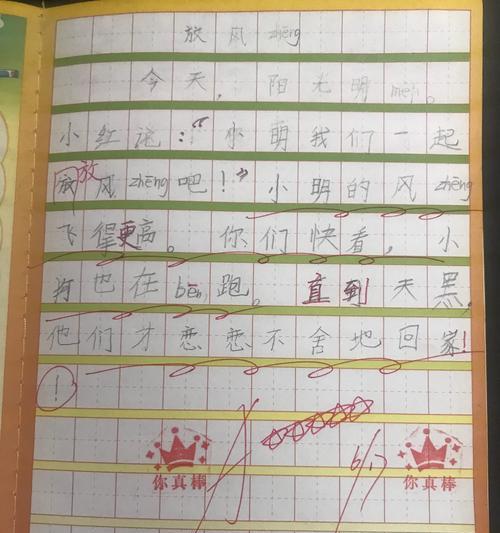 放风zhēng
今天，阳光明měi。
小红说：“小明我们一起
放风zhēng吧！”小明的风zhēng
飞得更高。你们快看，小
狗也在bēn跑。直到天黑，
他们才恋恋不舍地回家!
!
6/17
你真棒 你真棒